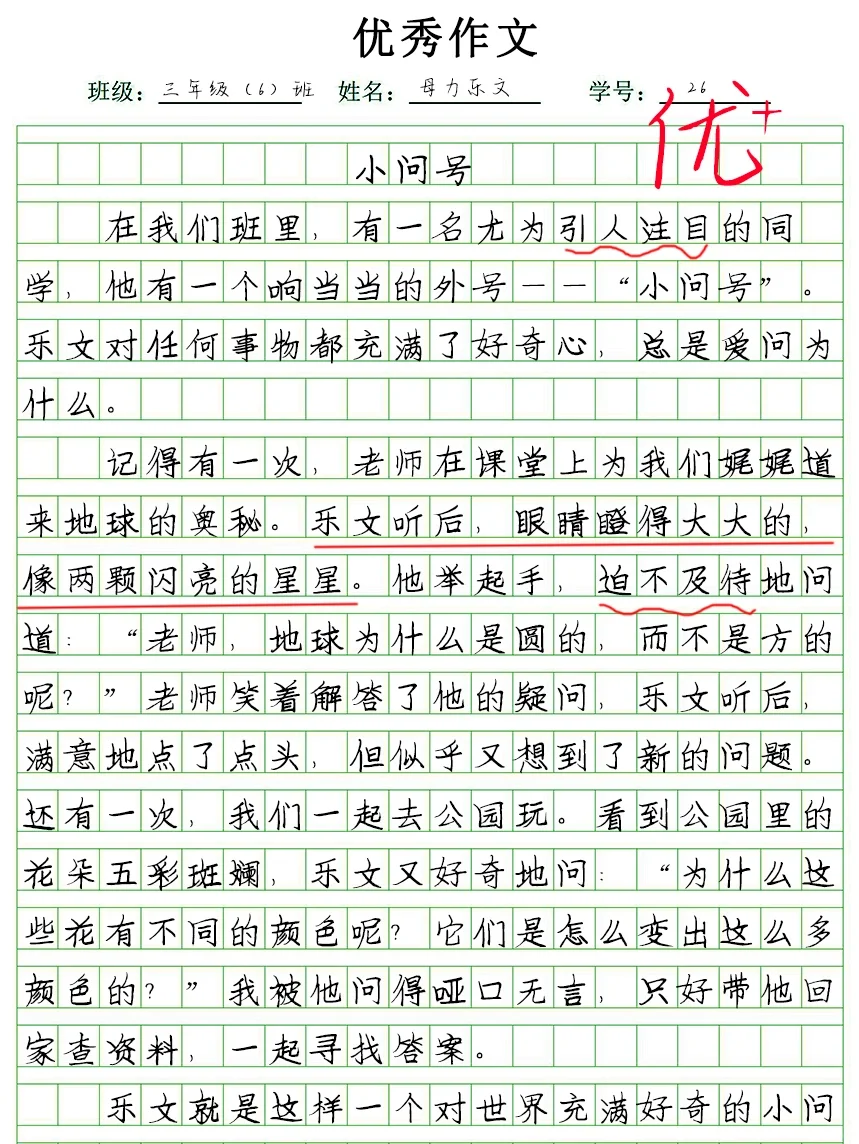 优秀作文
班级：三年级（6）班 姓名：母力乐文 学号：26
优+
小问号
在我们班里，有一名尤为引人注目的同
学，他有一个响当当的外号——“小问号”。
乐文对任何事物都充满了好奇心，总是爱问为
什么。
记得有一次，老师在课堂上为我们娓娓道
来地球的奥秘。乐文听后，眼睛瞪得大大的，
像两颗闪亮的星星。他举起手，迫不及待地问
道：“老师，地球为什么是圆的，而不是方的
呢？”老师笑着解答了他的疑问，乐文听后，
满意地点了点头，但似乎又想到了新的问题。
还有一次，我们一起去公园玩。看到公园里的
花朵五彩斑斓，乐文又好奇地问：“为什么这
些花有不同的颜色呢？它们是怎么变出这么多
颜色的？”我被他问得哑口无言，只好带他回
家查资料，一起寻找答案。
乐文就是这样一个对世界充满好奇的小问